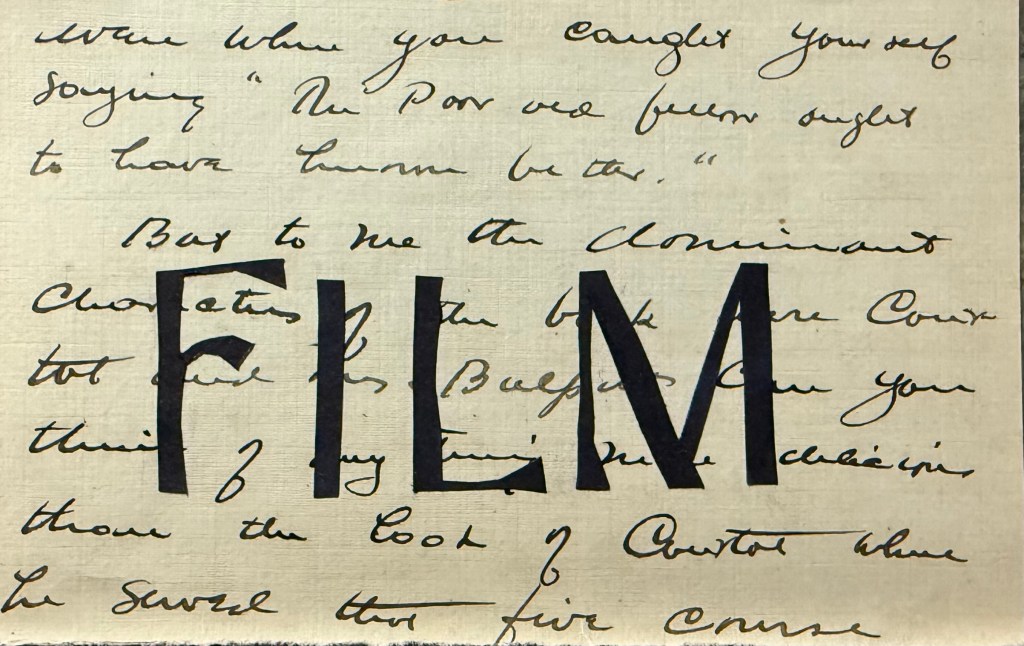 when you caught yourself
saying "The Poor old fellow ought
to have known better."
But to me the dominant
Characters of the book were Cour
tot and Mrs. Can you
think of any thing more delicious
than the look of Courtot when
he served that five course
FILM